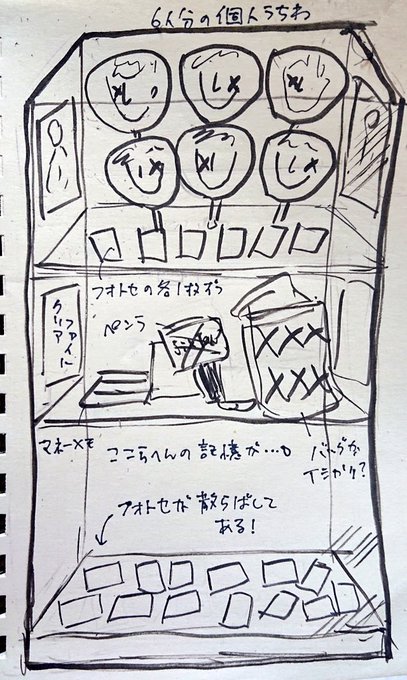 6人分の個人うちわ
フォトセの各1枚ずつ
クリア
ファイル
ペンラ
マネーメモ
ここらへんの記憶が…。
バッグか
Tシャツか?
フォトセが散らばして
ある!